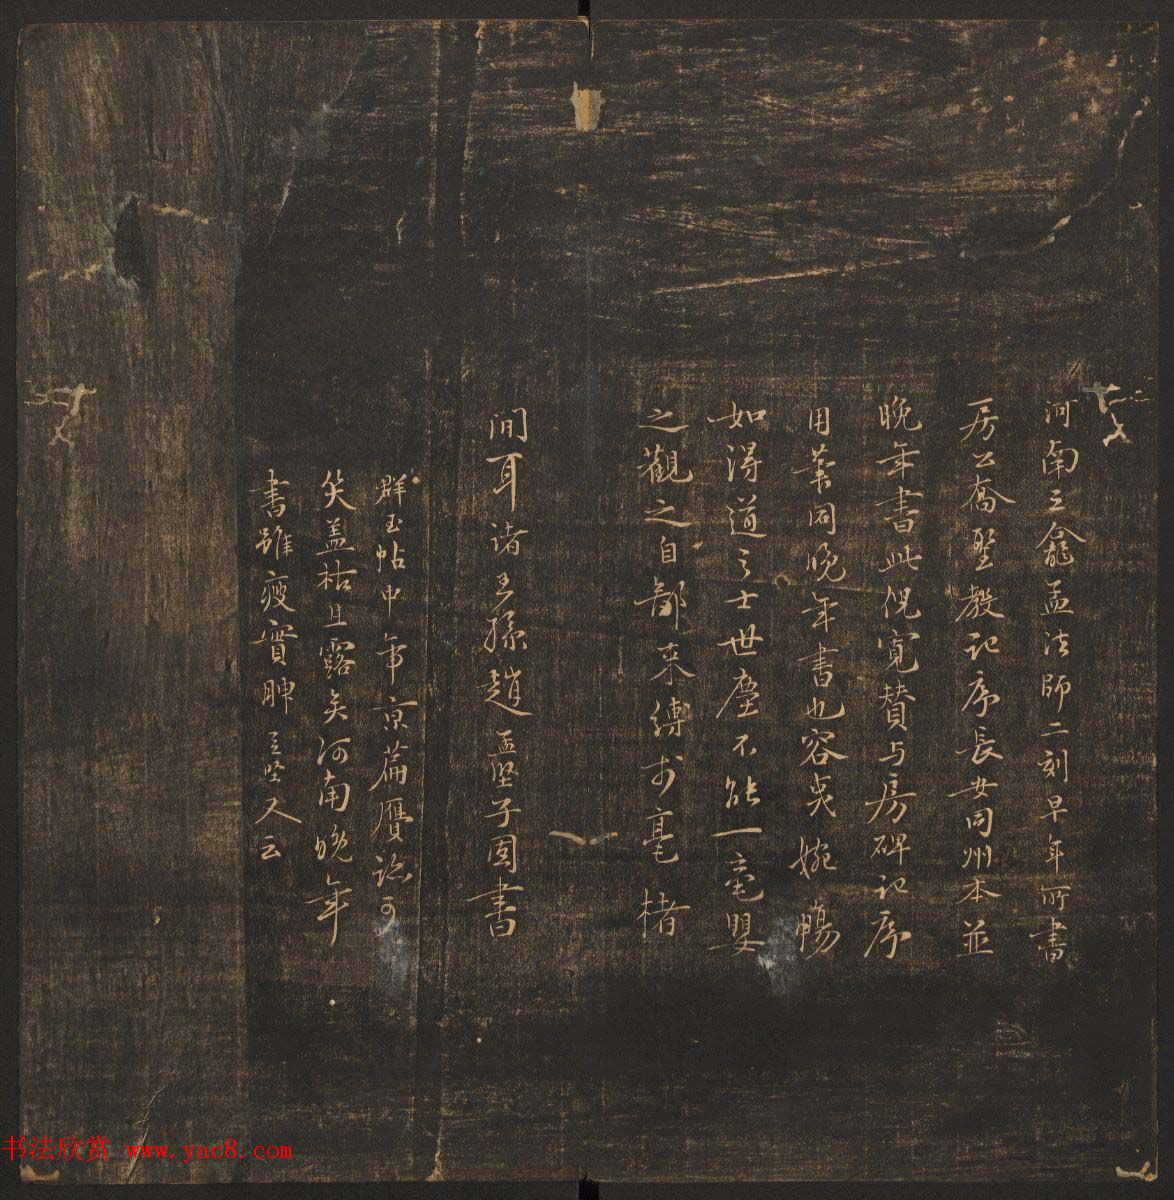 河南三龕孟法師二刻早年所書
房公喬聖教記序長女同州本並
晚年書此倪寬贊与房碑記序
用筆同晚年書也容夷婉暢
如得道之士世塵不能一毫嬰
之觀之自鄙束縛于毫楮
間耳諸王孫趙孟堅子固書
群玉帖中帝京篇贋跡可
笑盖枯且露矣河南晚年
書雖瘦實腴 孟堅又云
书法欣赏 www.yac8.com